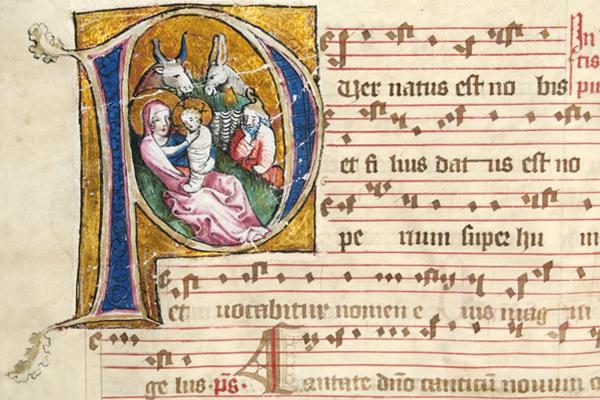 In
tis
PUer natus est no bis pu
et fi lius dat us est no
pe rium super hu
et uocabitur nomen e ius mag
ge lus · ps̄ · Cantate dn̄o canticū nouum